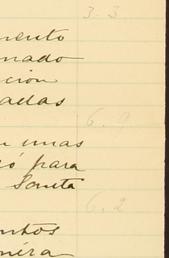 3-3
mento
nado
cion
adas
6.9
n unas
ó para
Santa
6.2
ntos
nera